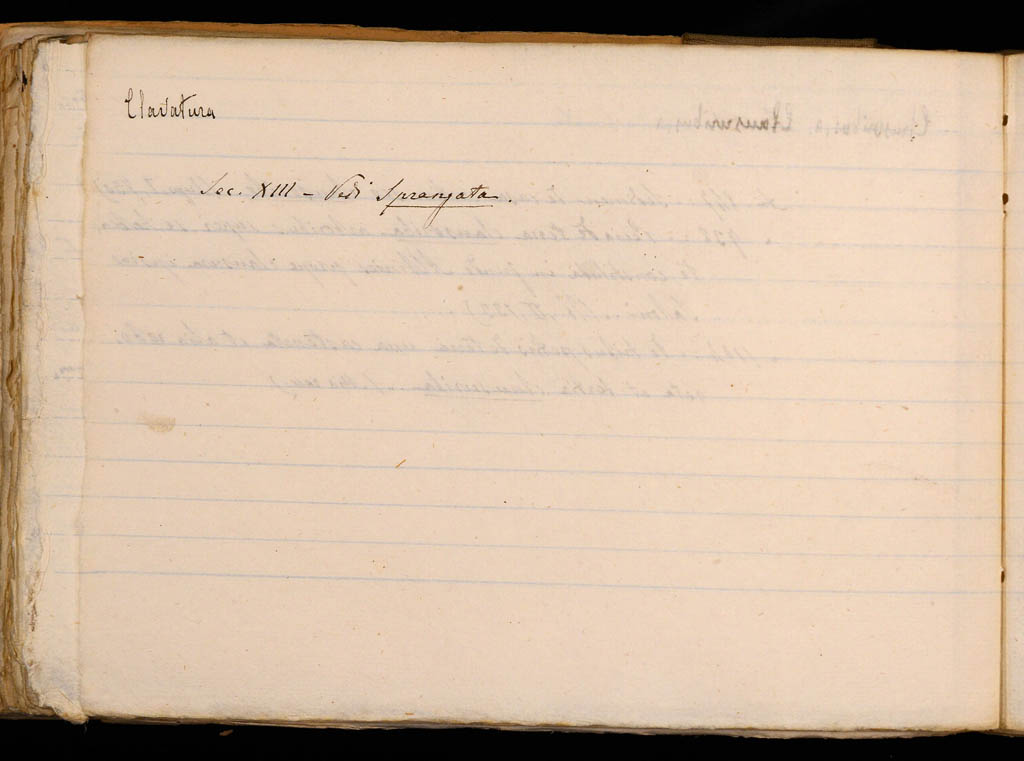 Clavatura
Sec. XIII - Vedi Sprangata.